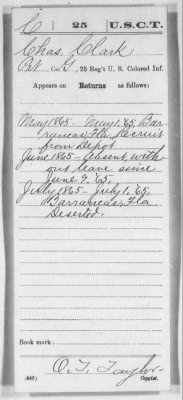 C 25 U.S.C.T.
Chas. Clark
Pvt, Co. G, 25 Reg't U. S. Colored Inf.
Appears on Returns as follows:
May 1865 - May 1, '65, Bar-
rancas, Fla. Recruit
from Depot
June 1865 - Absent with
out leave since
June 9, '65.
July 1865 - July 1, '65,
Barrancas, Fla.
Deserted.
Book mark:
O. T. Taylor
(546) Copyist.